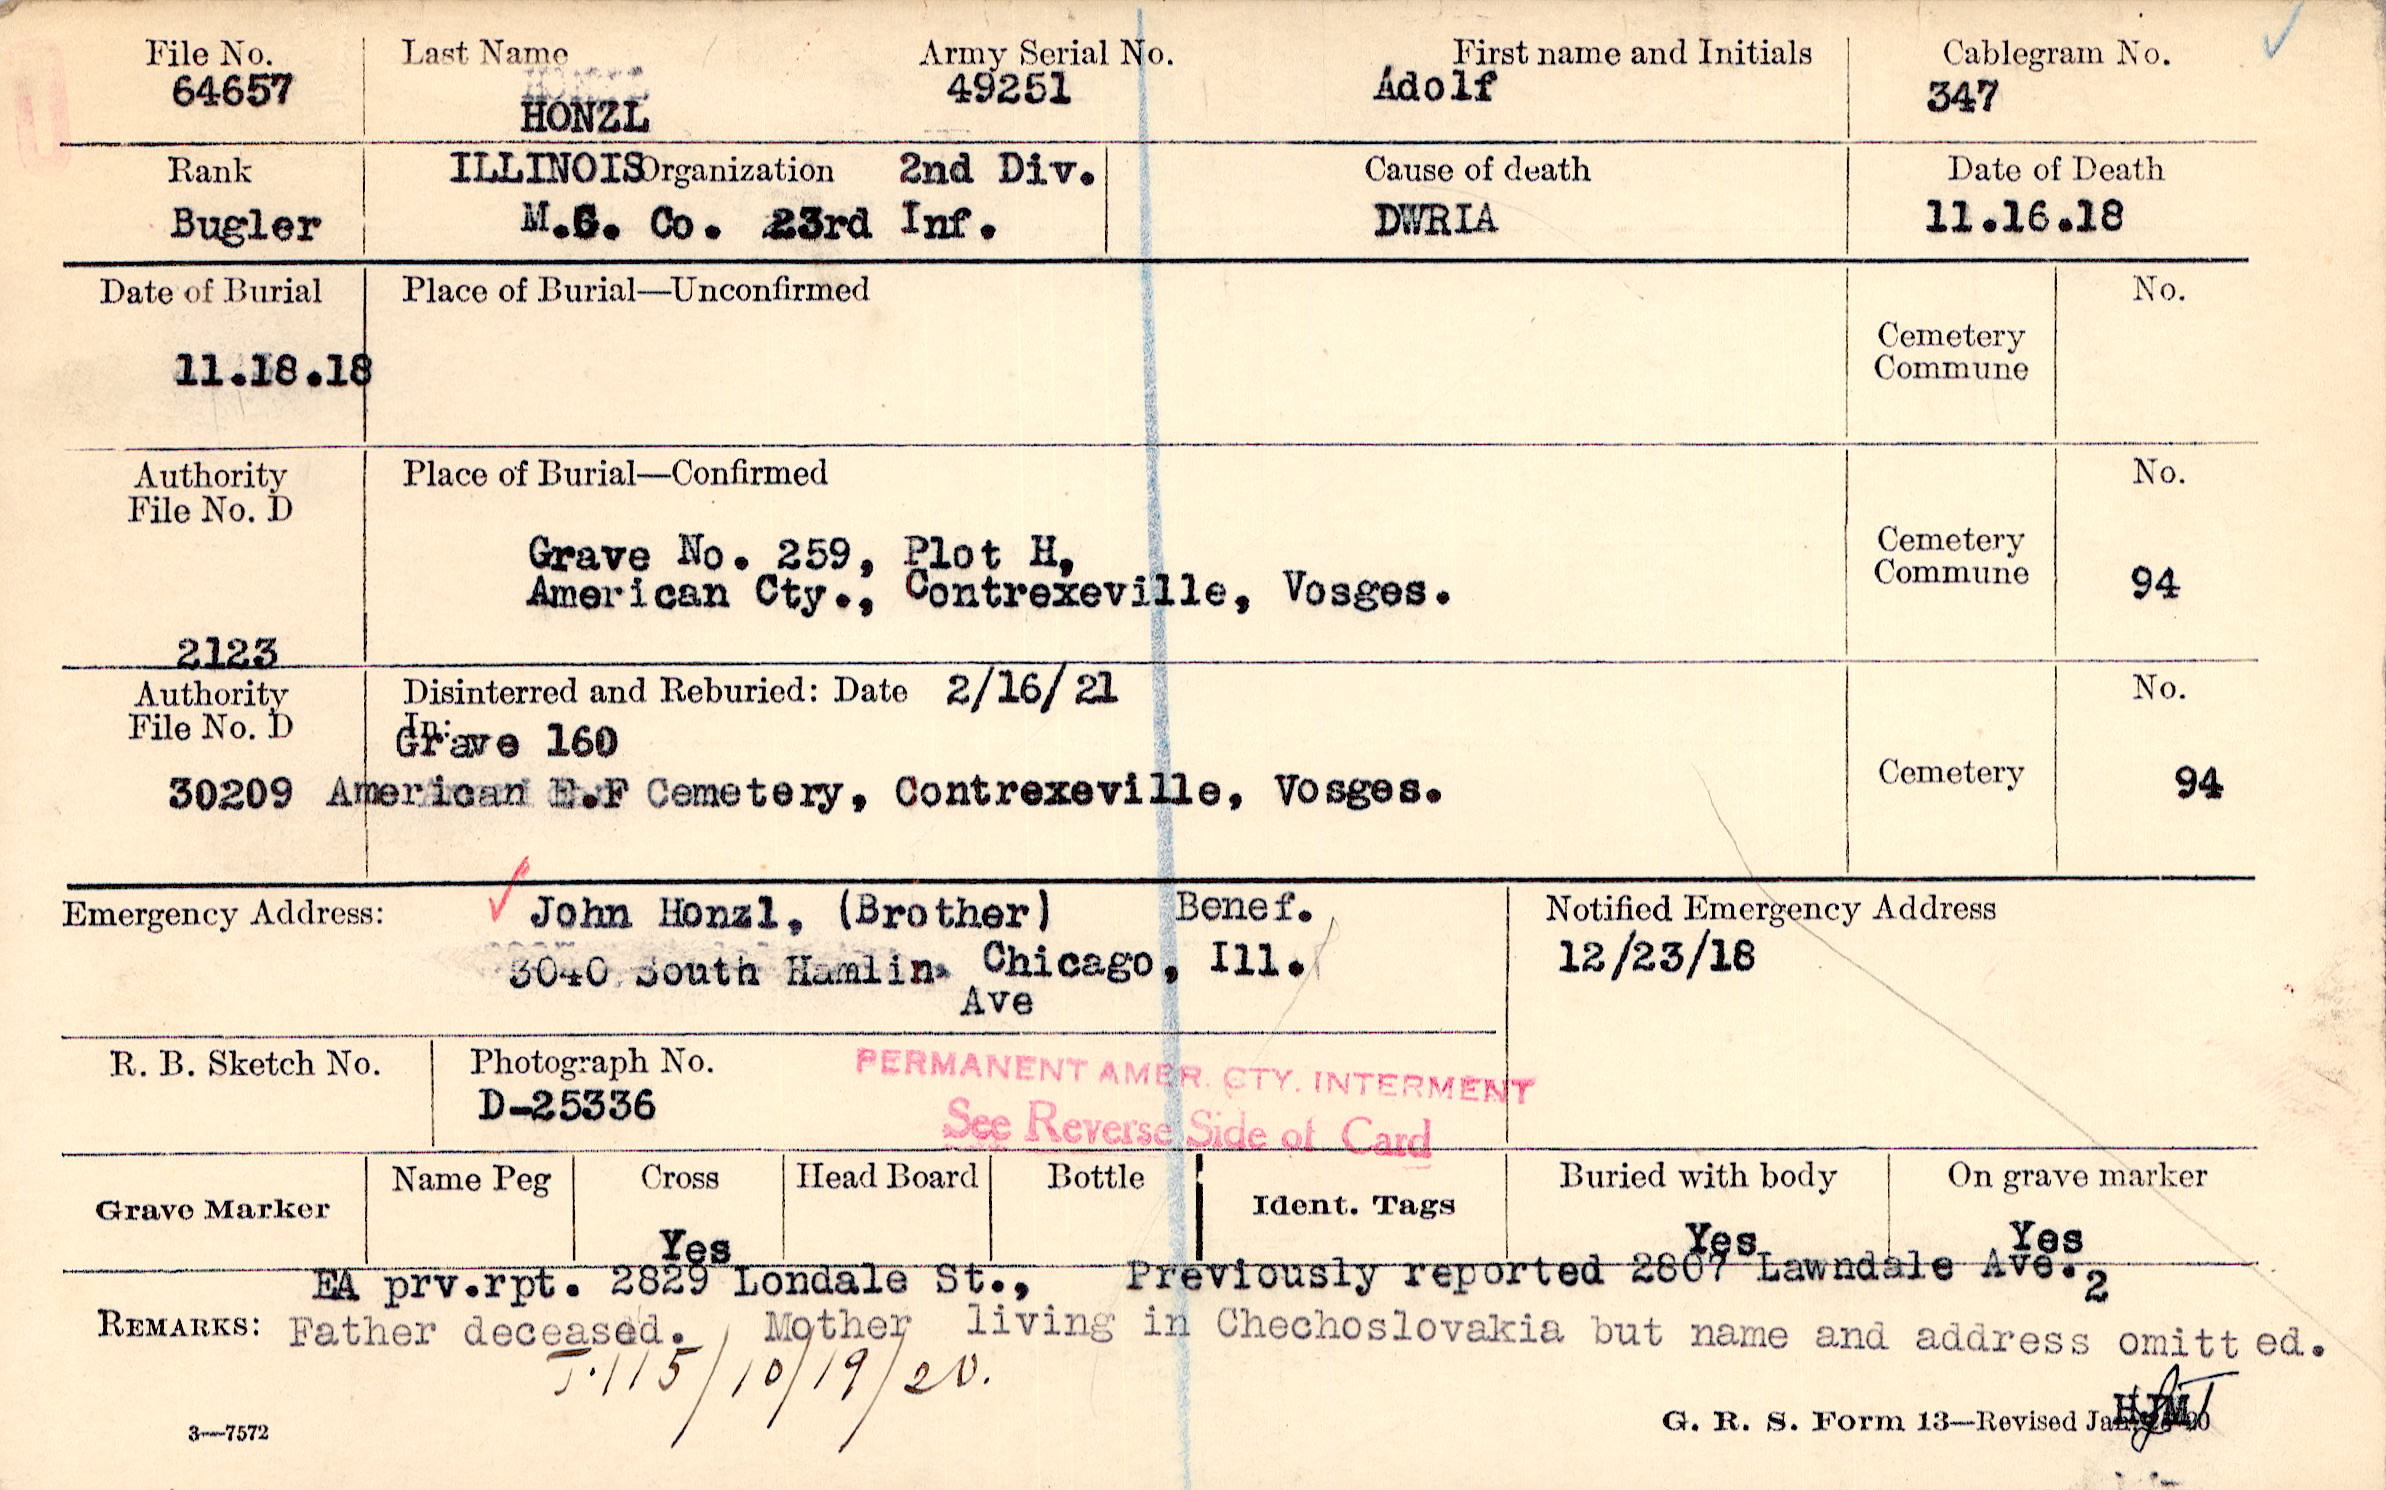 File No. Last Name Army Serial No. First name and Initials Cablegram No.
64657 HONZL 49251 Adolf 347
Rank ILLINOIS Organization 2nd Div. Cause of death Date of Death
Bugler M.G. Co. 23rd Inf. DWRIA 11.16.18
Date of Burial Place of Burial—Unconfirmed No.
Cemetery
Commune
11.18.18
Authority Place of Burial—Confirmed No.
File No. D
Grave No. 259, Plot H, Cemetery
American Cty., Contrexeville, Vosges. Commune 94
2123
Authority Disinterred and Reburied: Date 2/16/21 No.
File No. D In:
Grave 160
Cemetery
30209 American E.F Cemetery, Contrexeville, Vosges. 94
Emergency Address: John Honzl, (Brother) Benef. Notified Emergency Address
3040 South Hamlin Chicago, Ill. 12/23/18
Ave
R. B. Sketch No. Photograph No. PERMANENT AMER. CTY. INTERMENT
D-25336 See Reverse Side of Card
Grave Marker Name Peg Cross Head Board Bottle Ident. Tags Buried with body On grave marker
Yes Yes Yes
EA prv.rpt. 2829 Londale St., Previously reported 2807 Lawndale Ave. 2
REMARKS: Father deceased. Mother living in Chechoslovakia but name and address omitted.
T.115/10/19/20.
3—7572 G. R. S. Form 13—Revised Jan HJM